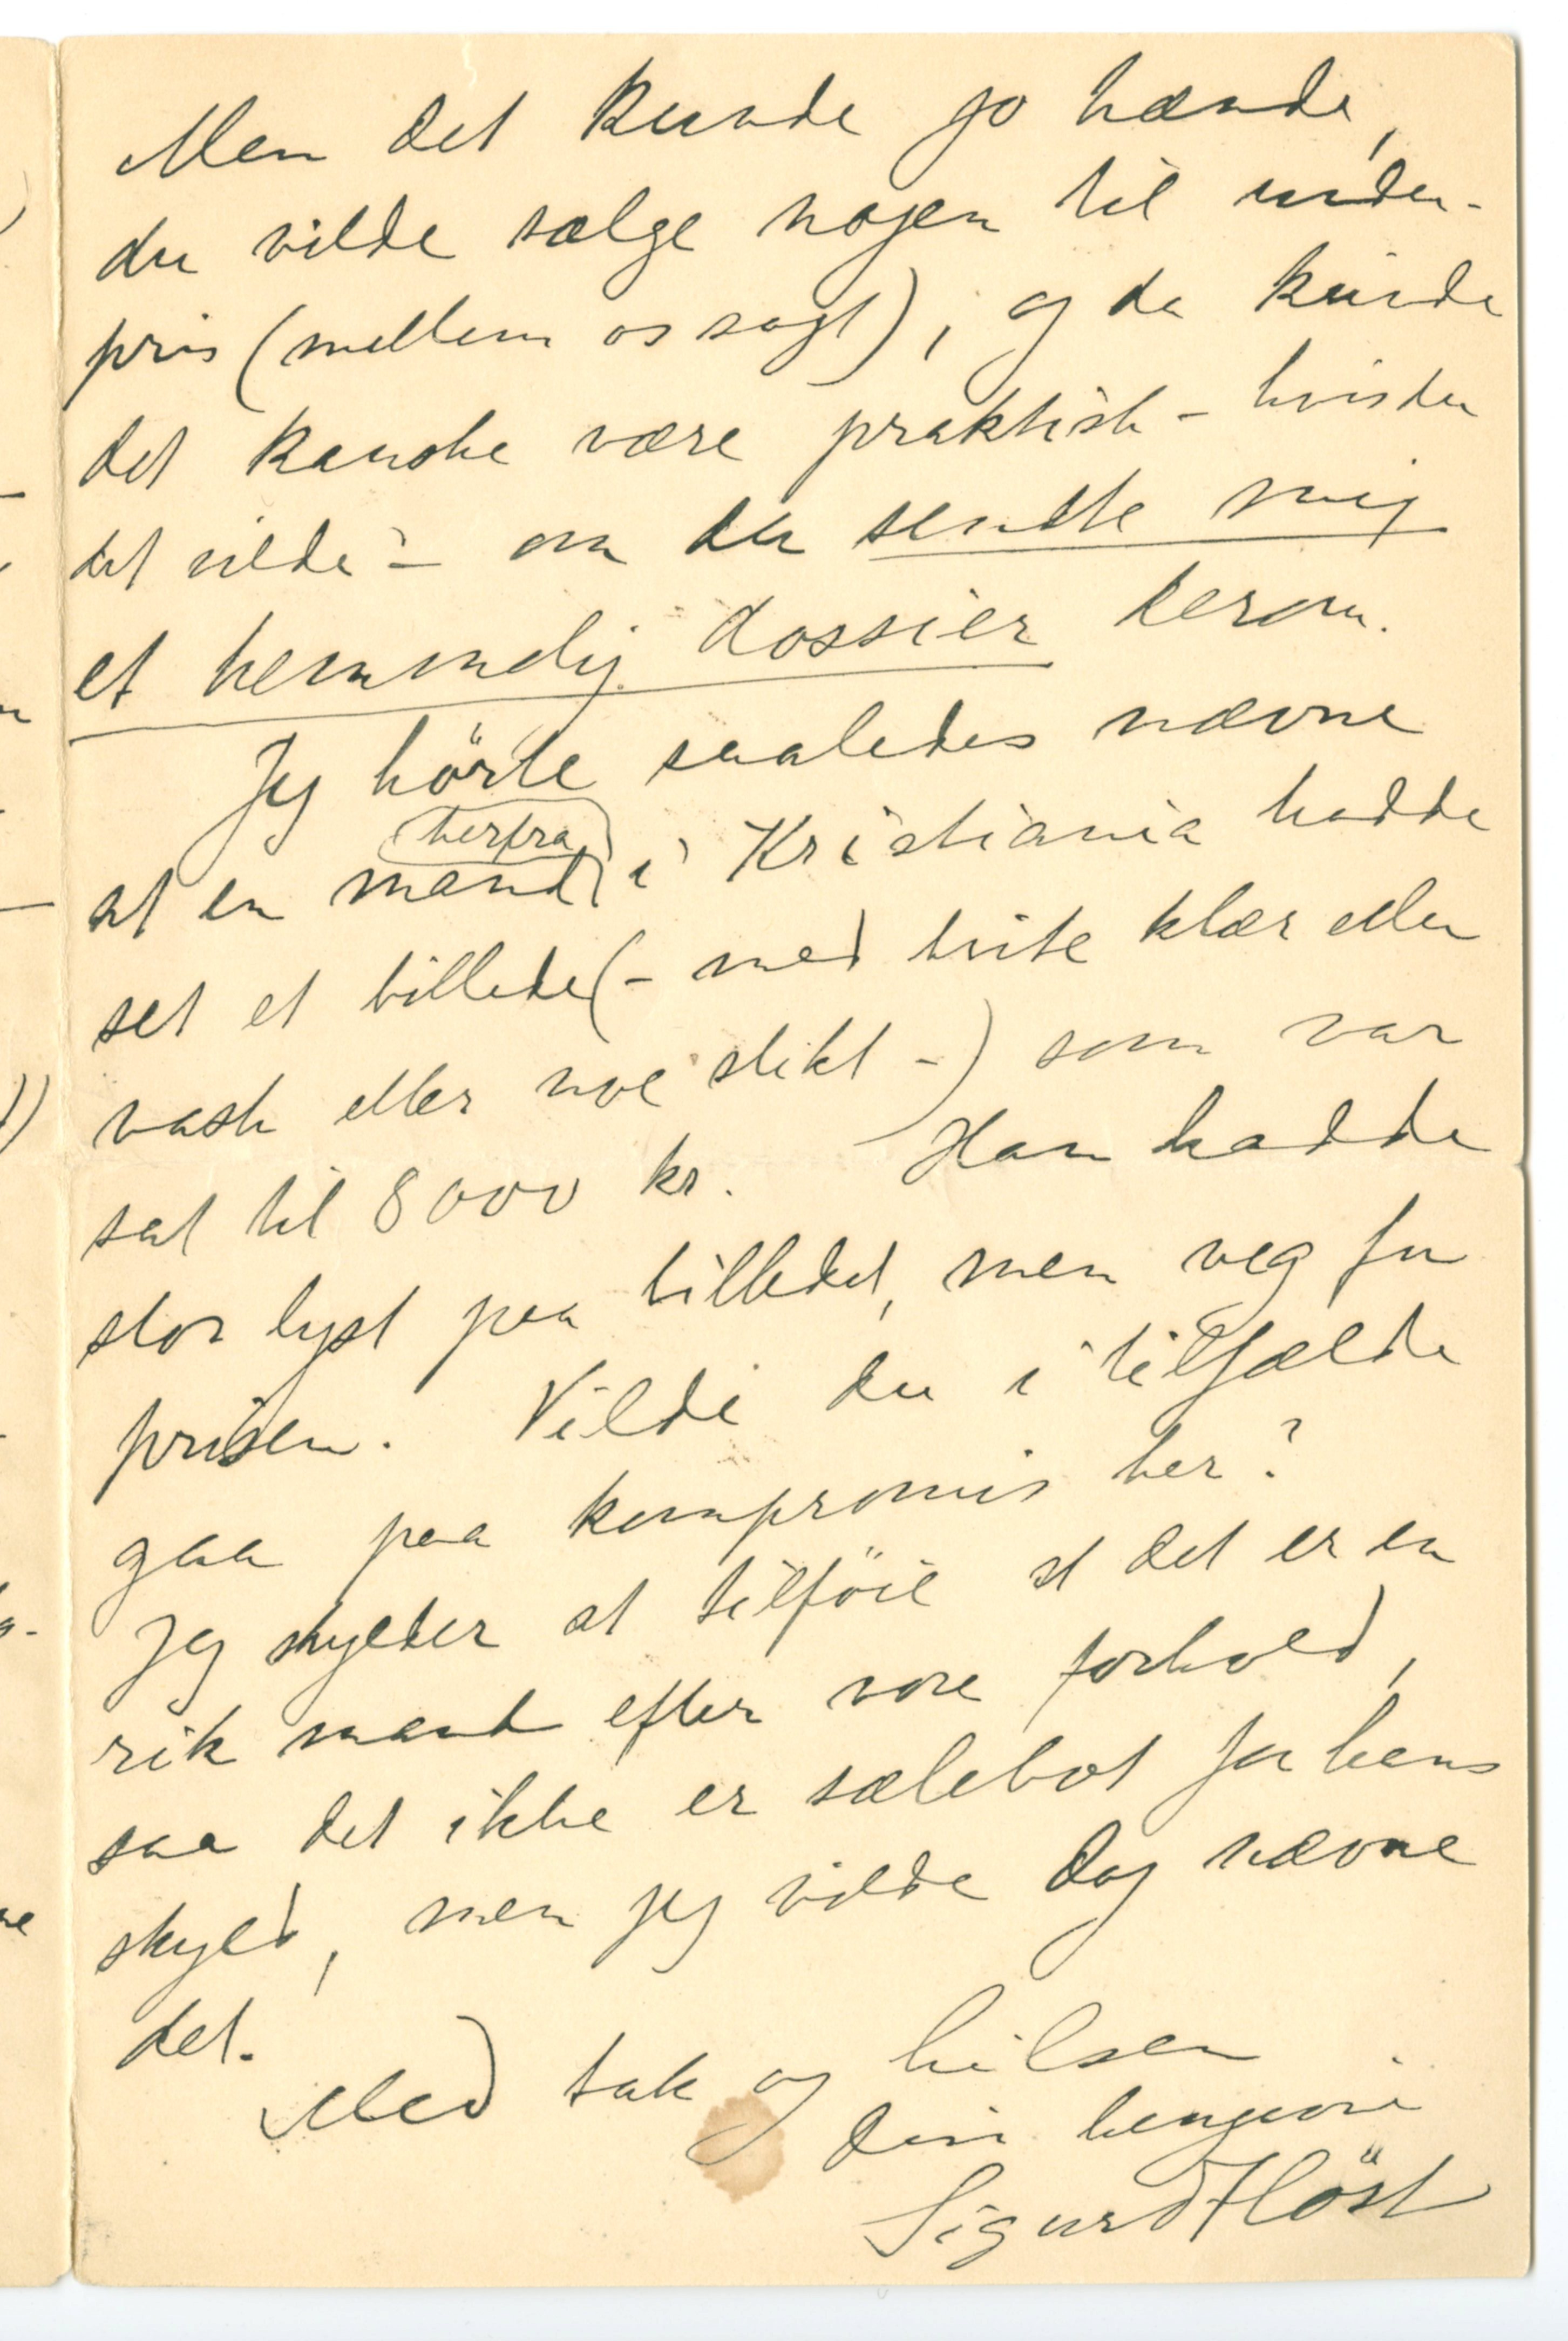 Men det kunde jo hænde,
du vilde sælge nogen til under-
pris (mellem os sagt), og da kunde
det kanske være praktisk – hvis du
det vilde – om du sendte mig
et hemmelig dossier derom.
Jeg hörte saaledes nævne
herfra
at en mand i Kristiania hadde
set et billede (– med hvite klær eller
vask eller noe slikt –) som var
sat til 8000 kr. Han hadde
stor lyst paa billedet, men veg for
prisen. Vilde du i tilfælde
gaa paa kompromis her?
Jeg skylder at tilföie at det er en
rik mand efter vore forhold,
saa det ikke er sælebot for hans
skyld, men jeg vilde dog nævne
det.
Med tak og hilsen
din hengivne
Sigurd Höst